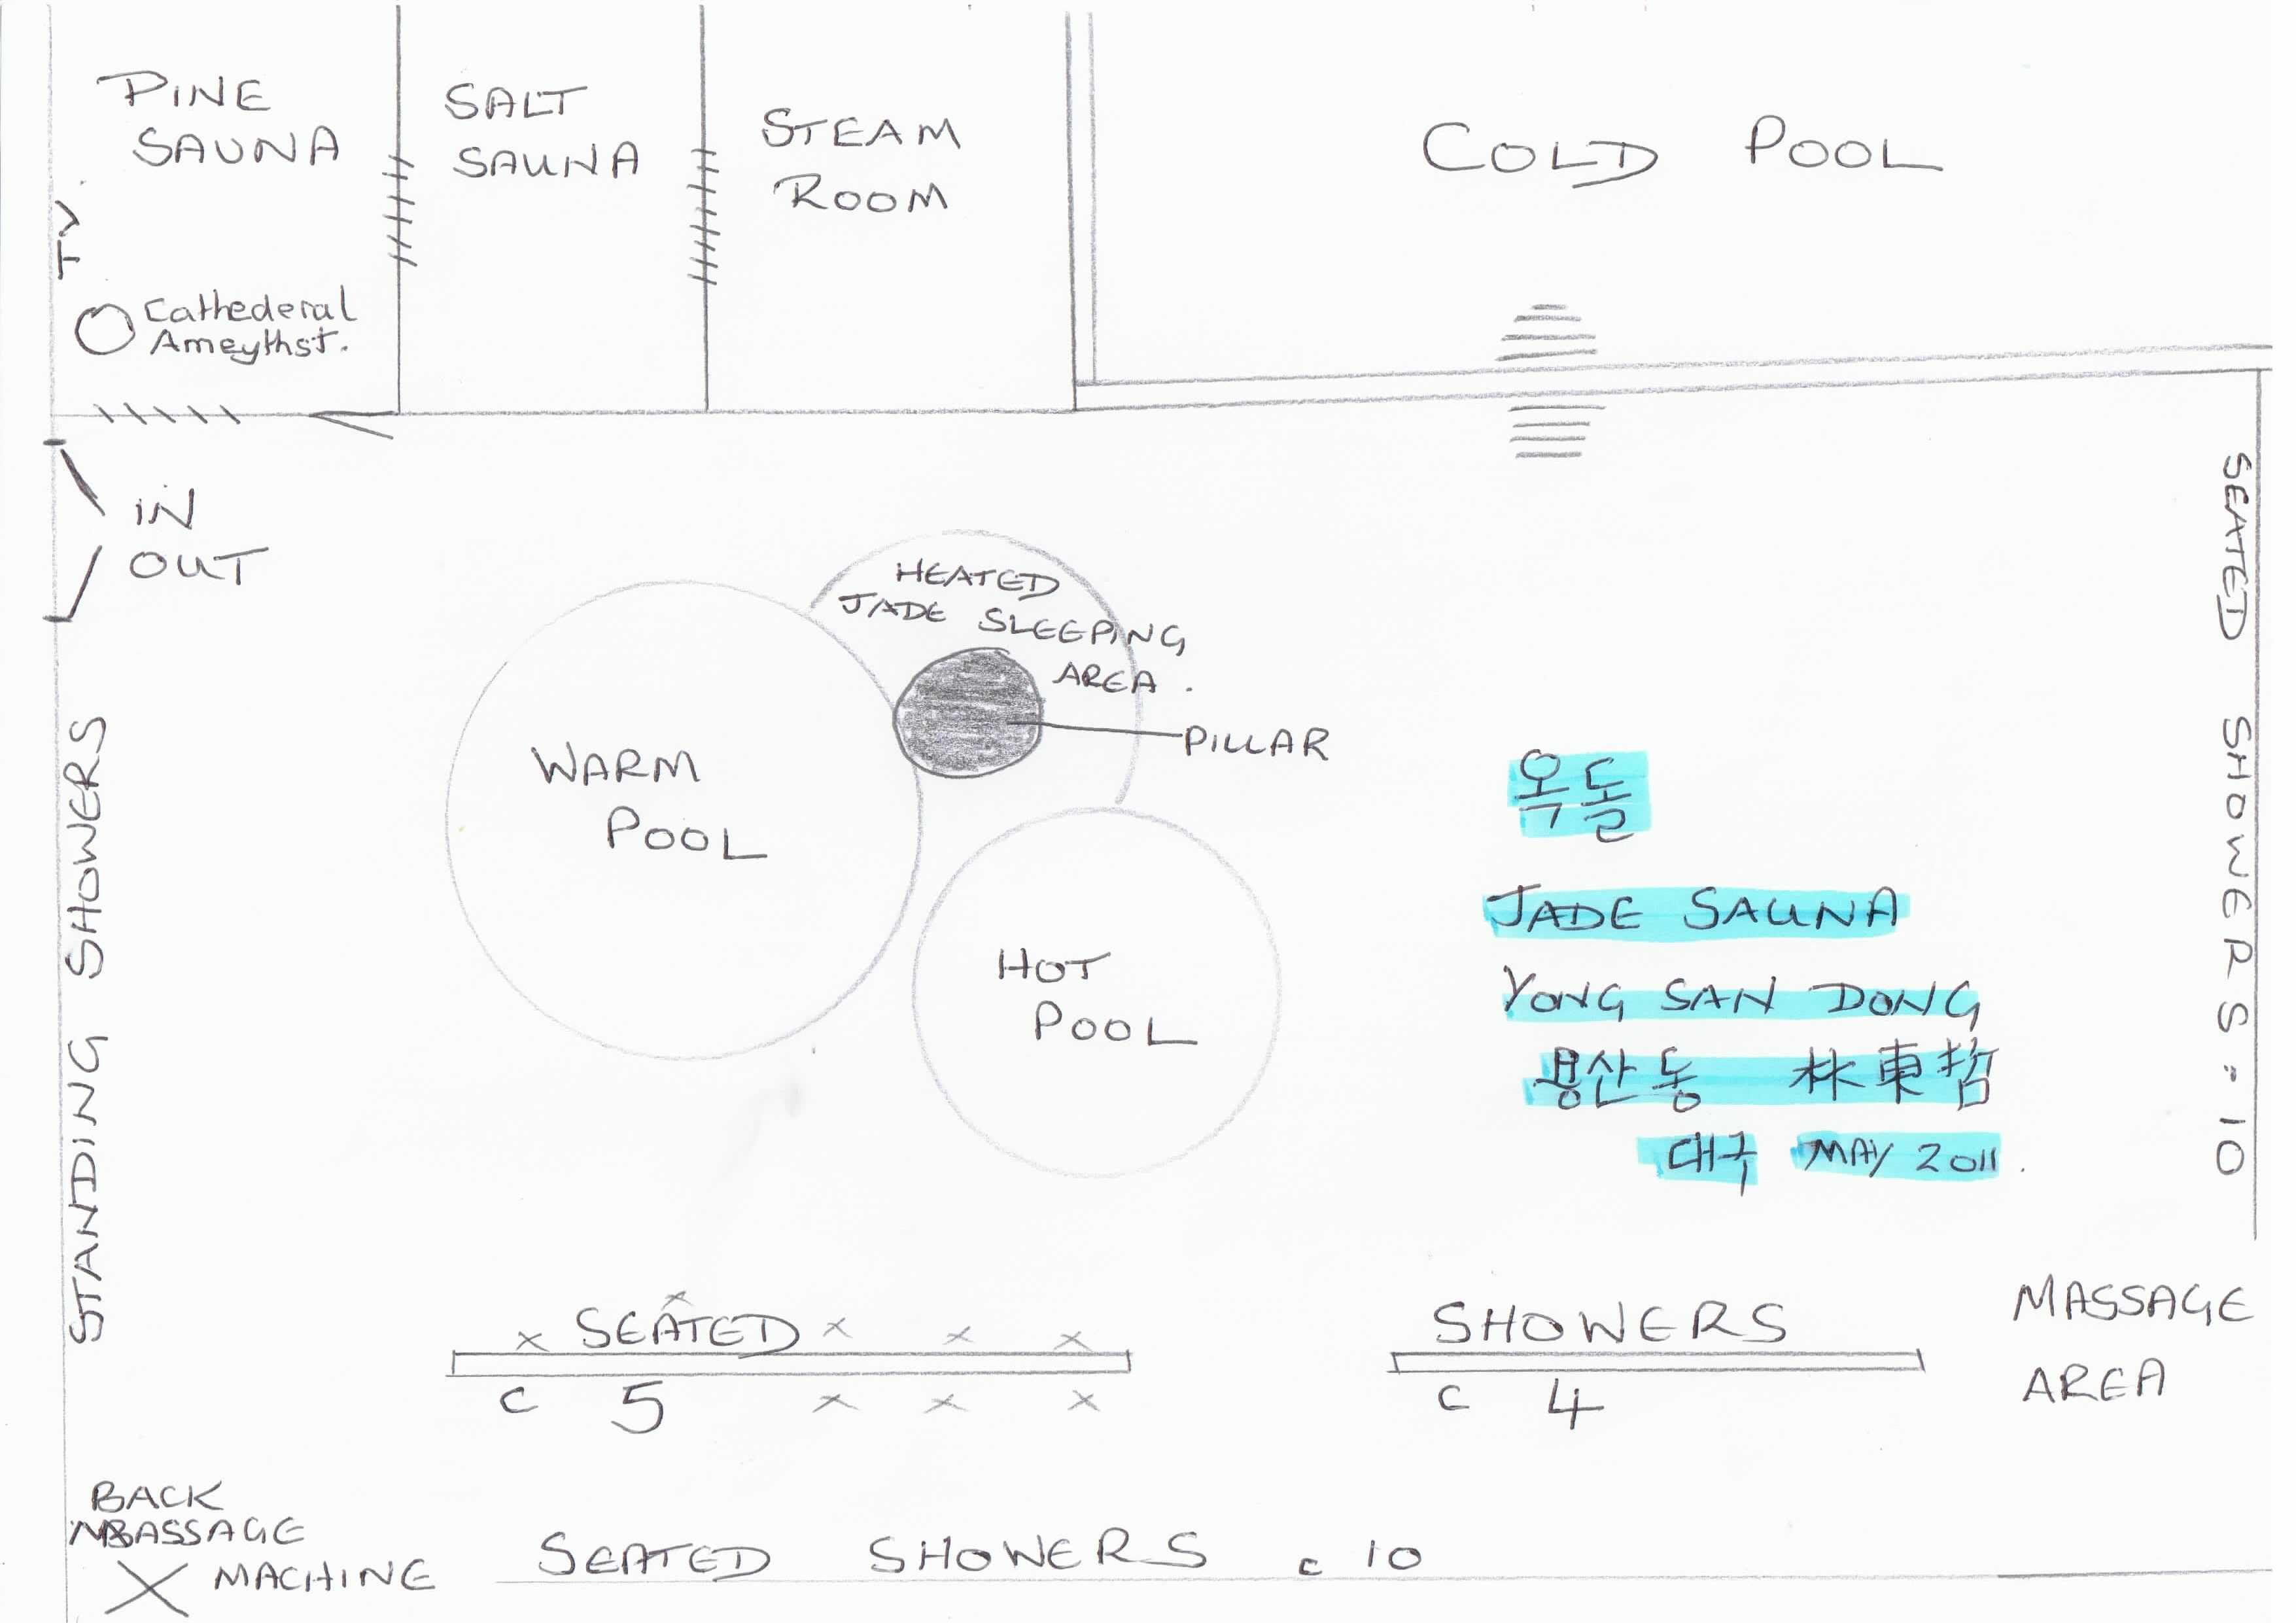 PINE
SAUNA
SALT
SAUNA
STEAM
ROOM
COLD POOL
TV
Cathederal
Ameythst.
IN
OUT
HEATED
JADE SLEEPING
AREA.
PILLAR
WARM
POOL
HOT
POOL
STANDING SHOWERS
SEATED SHOWERS = 10
옥돌
JADE SAUNA
YONG SAN DONG
용산동 林東哲
대구 MAY 2011.
x SEATED x x x x
c 5 x x x
SHOWERS
c 4
MASSAGE
AREA
BACK
MASSAGE
X MACHINE
SEATED SHOWERS c 10